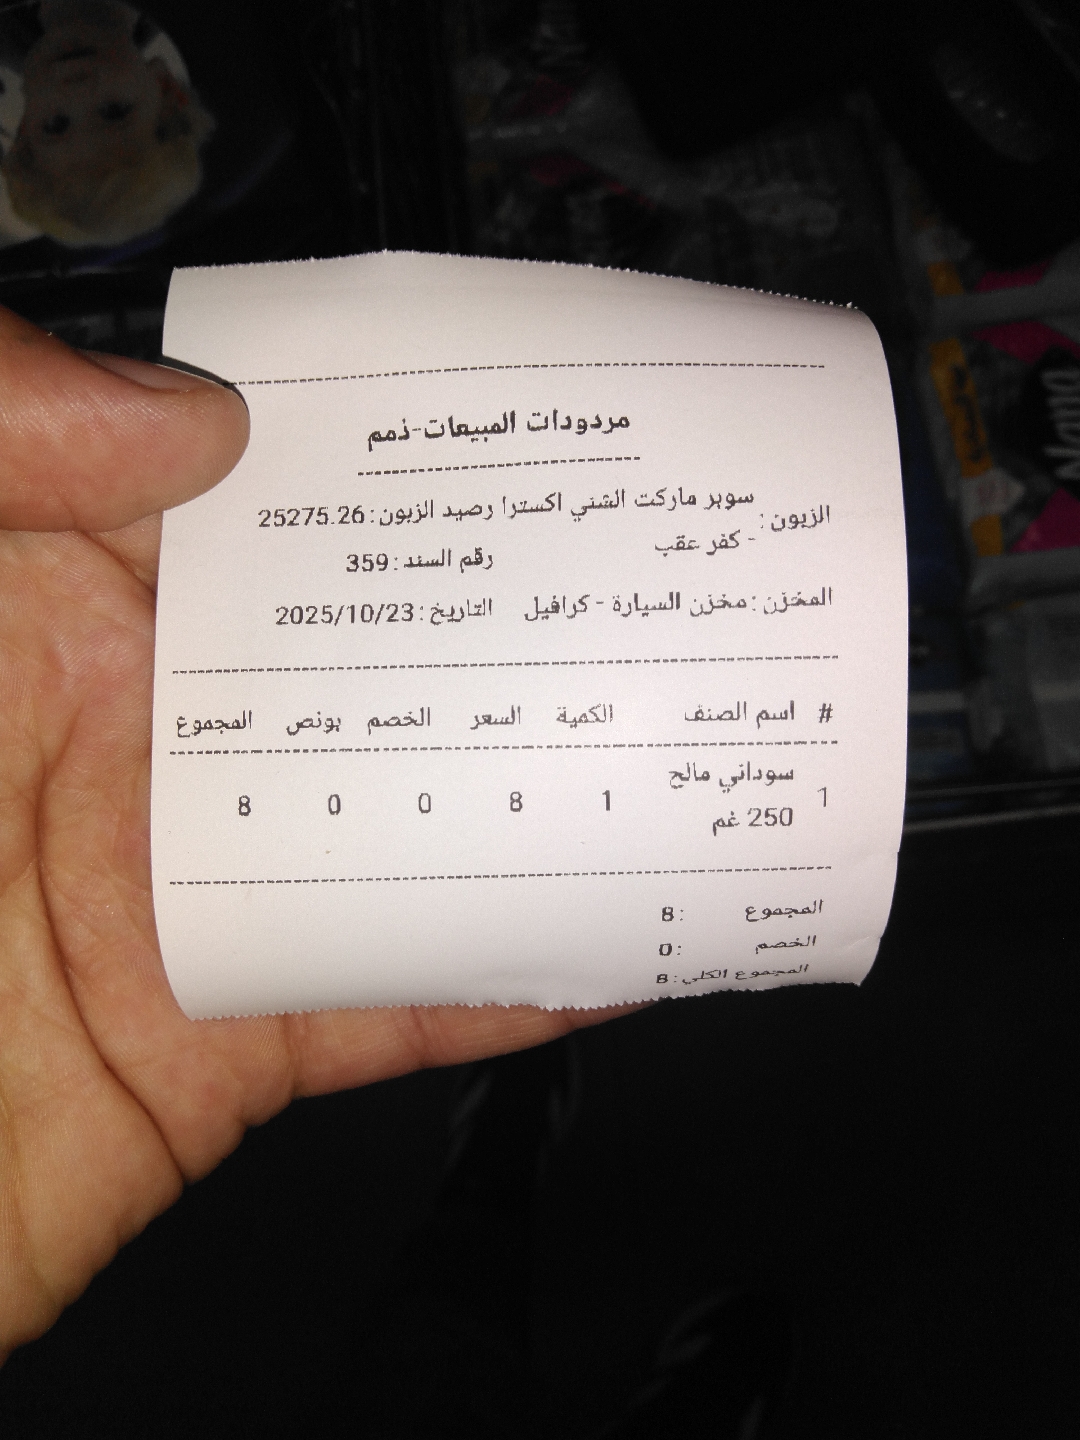 مردودات المبيعات-ذمم
الزبون: سوبر ماركت الشني اكسترا - كفر عقب
رصيد الزبون: 25275.26
رقم السند: 359
المخزن: مخزن السيارة - كرافيل
التاريخ: 2025/10/23
# اسم الصنف الكمية السعر الخصم بونص المجموع
1 سوداني مالح 250 غم 1 8 0 0 8
المجموع : 8
الخصم : 0
المجموع الكلي: 8
Nama